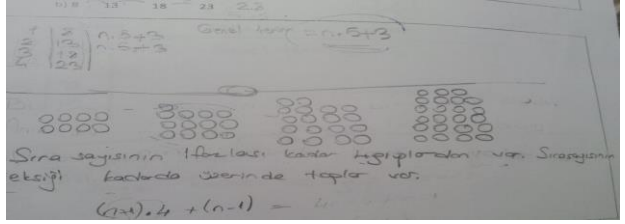 b) 8 13 18 23
1 8 n.5+3
2 13 n.5+3
3 18
23
Genel terim = n.5+3
Sıra sayısının 1 fazlası kadar var. Sırasayısının
eksiği kadarda üzerinde toplar var.
(n+1).4 + (n-1) =